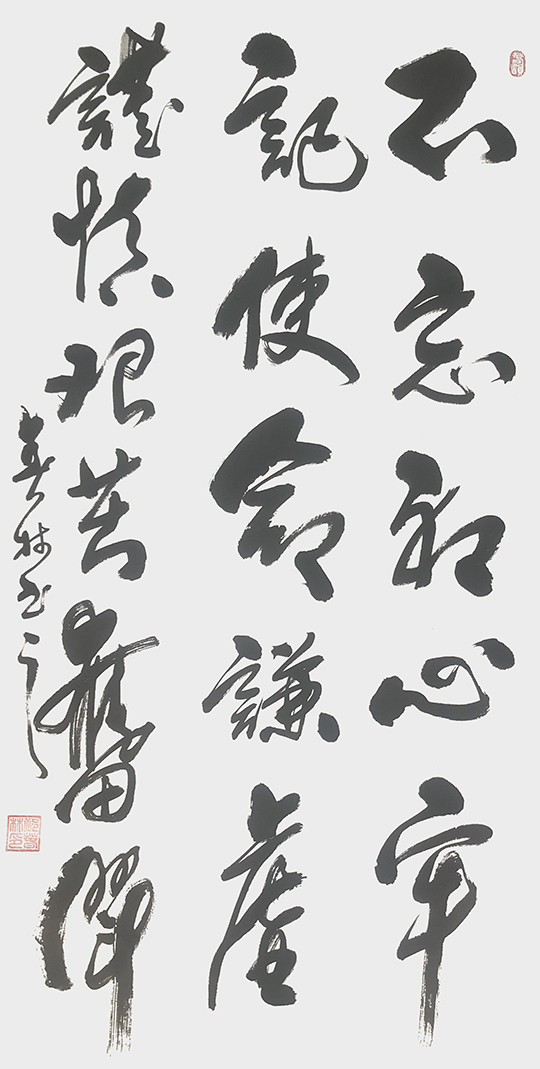 不忘初心牢
記使命謙虛
謹慎艰苦奮鬥
春林书